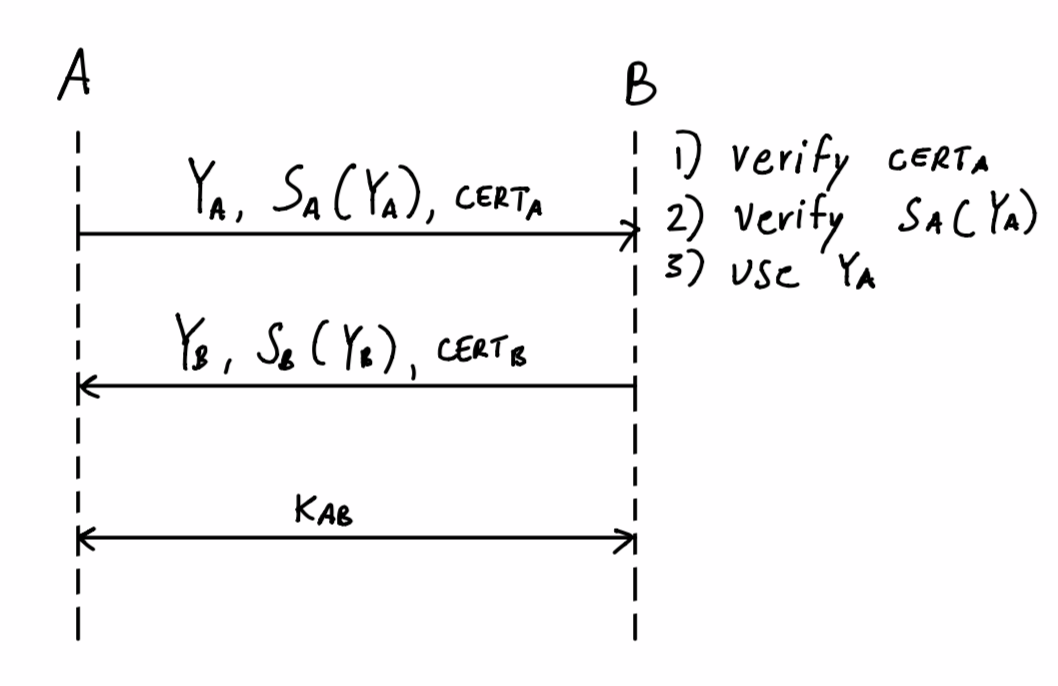 A
B
Y_A, S_A(Y_A), CERT_A
1) verify CERT_A
2) verify S_A(Y_A)
3) use Y_A
Y_B, S_B(Y_B), CERT_B
K_AB